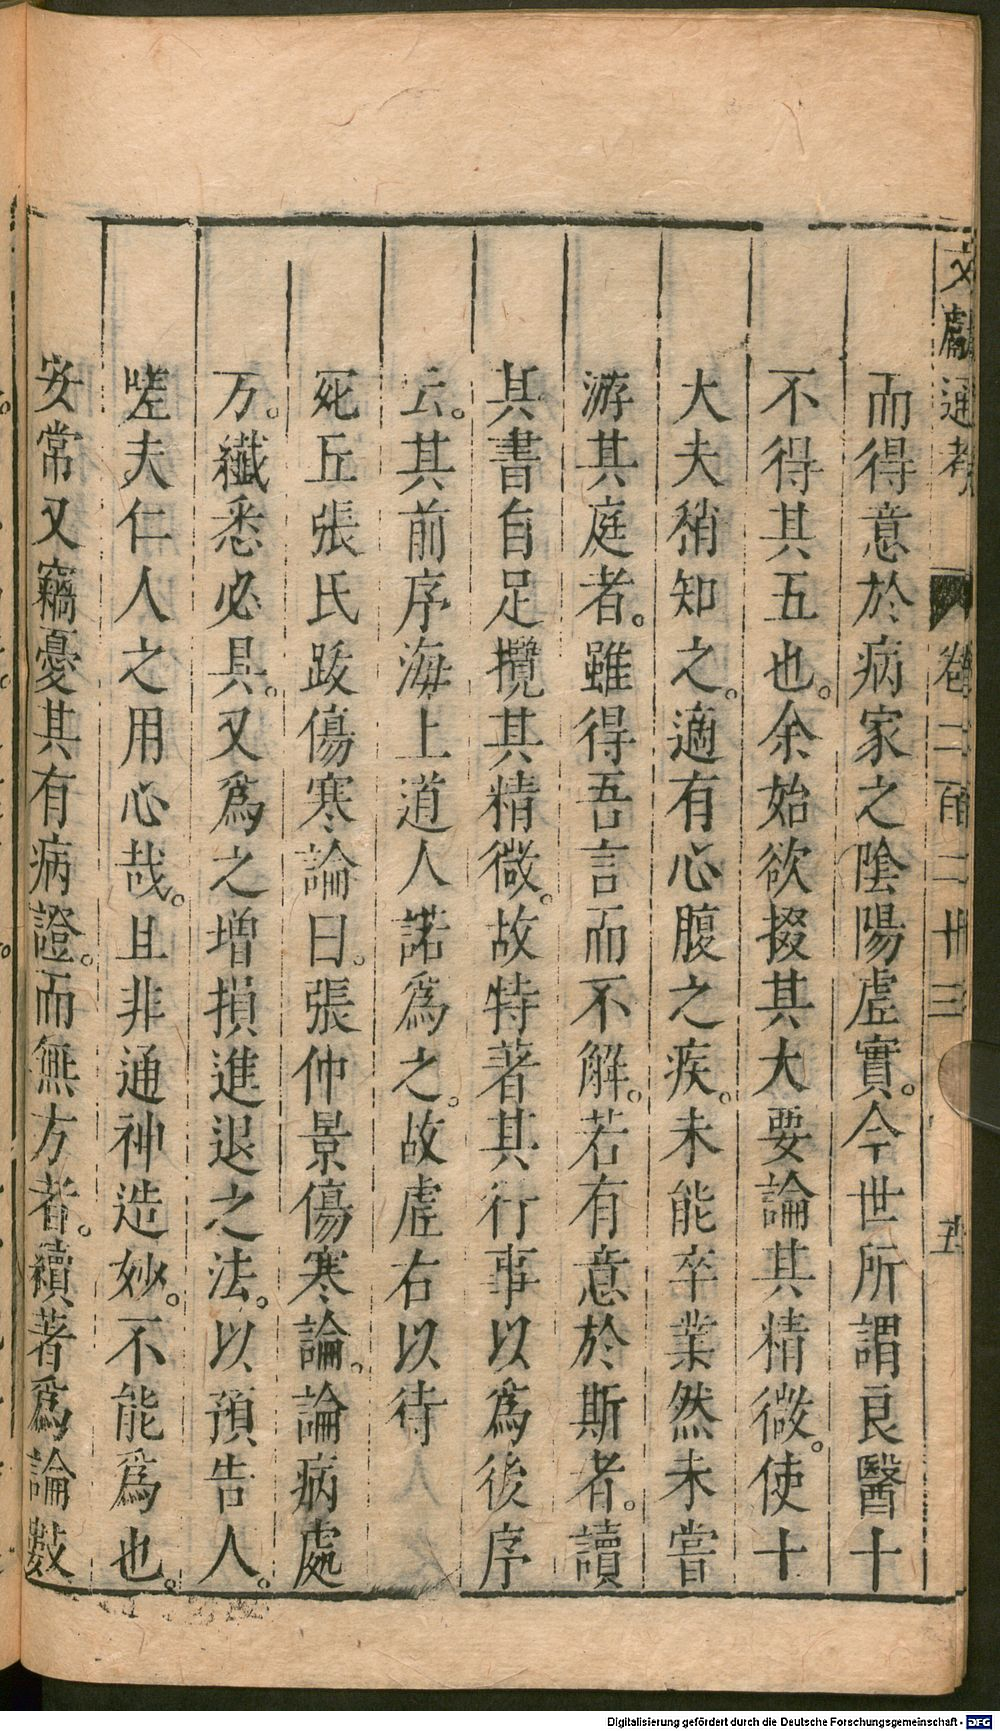 文獻通考 卷二百二十三 五
而得意於病家之陰陽虛實。今世所謂良醫十
不得其五也。余始欲掇其大要論其精微。使十
大夫稍知之。適有心腹之疾。未能卒業然未嘗
游其庭者。雖得吾言而不解。若有意於斯者。讀
其書自足攬其精微。故特著其行事以為後序
云。其前序海上道人諾為之。故虛右以待
死丘張氏跋傷寒論曰。張仲景傷寒論。論病處
方。纖悉必具。又為之增損進退之法。以預告人。
嗟夫仁人之用心哉。且非通神造妙。不能為也。
安常又竊憂其有病證。而無方者。續著為論數
Digitalisierung gefördert durch die Deutsche Forschungsgemeinschaft - DFG